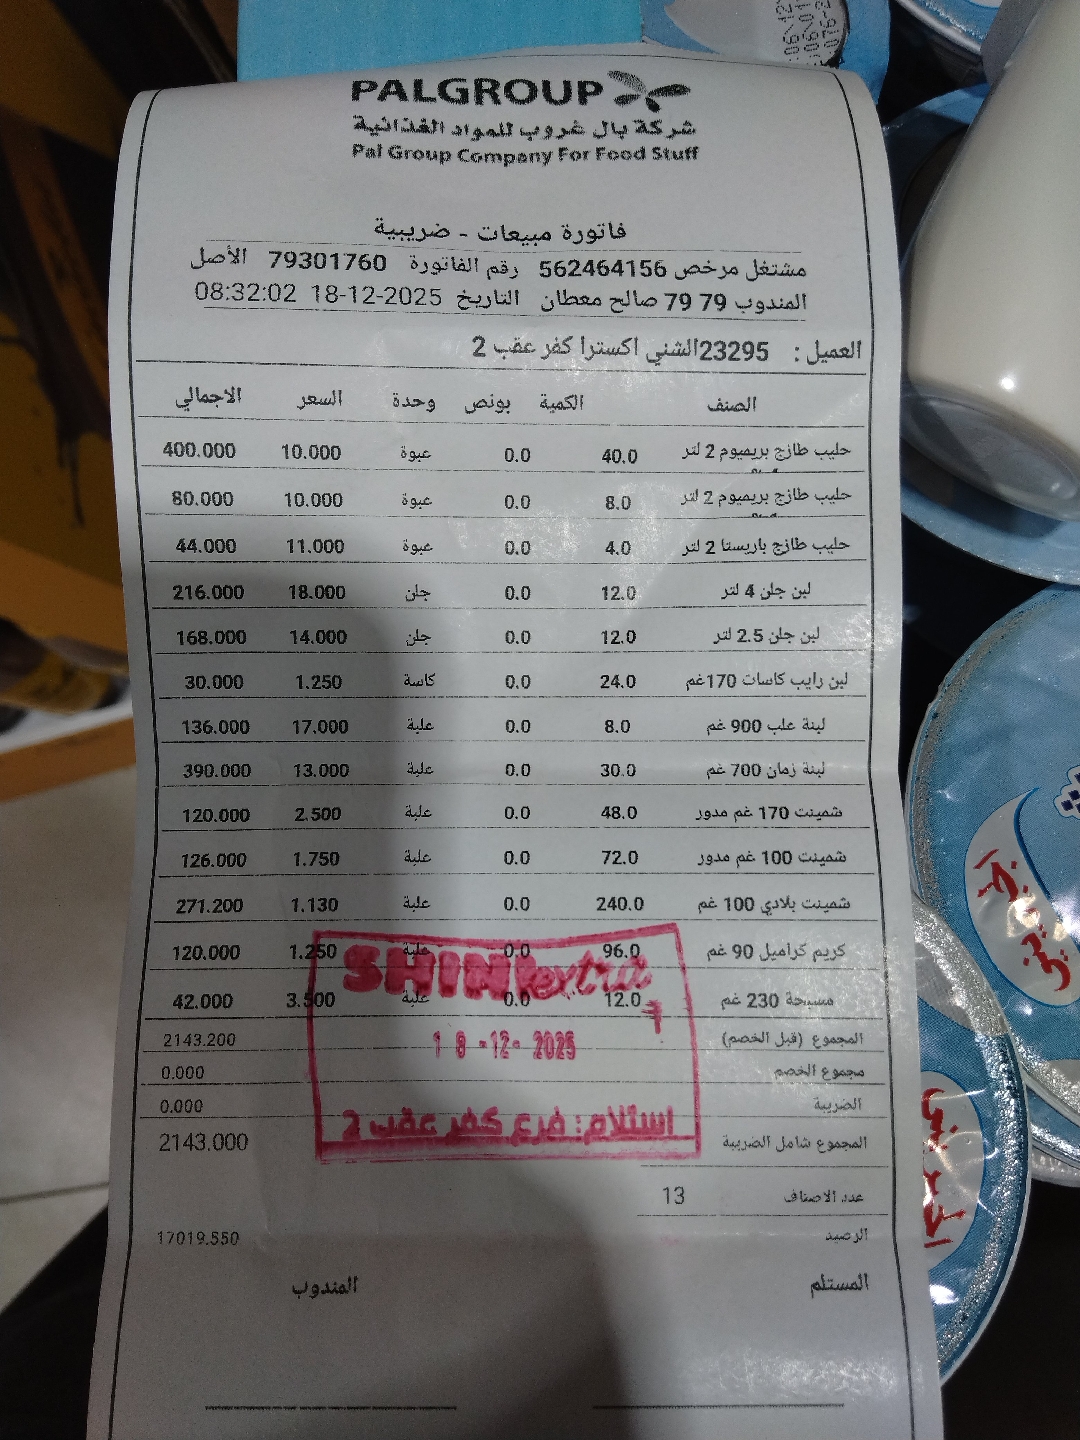 PALGROUP
شركة بال غروب للمواد الغذائية
Pal Group Company For Food Stuff
فاتورة مبيعات - ضريبية
مشتغل مرخص 562464156 رقم الفاتورة 79301760 الأصل
المندوب 79 79 صالح معطان التاريخ 18-12-2025 08:32:02
العميل : 23295الشني اكسترا كفر عقب 2
الصنف الكمية بونص وحدة السعر الاجمالي
حليب طازج بريميوم 2 لتر 40.0 0.0 عبوة 10.000 400.000
حليب طازج بريميوم 2 لتر 8.0 0.0 عبوة 10.000 80.000
حليب طازج باريستا 2 لتر 4.0 0.0 عبوة 11.000 44.000
لبن جلن 4 لتر 12.0 0.0 جلن 18.000 216.000
لبن جلن 2.5 لتر 12.0 0.0 جلن 14.000 168.000
لبن رايب كاسات 170غم 24.0 0.0 كاسة 1.250 30.000
لبنة علب 900 غم 8.0 0.0 علبة 17.000 136.000
لبنة زمان 700 غم 30.0 0.0 علبة 13.000 390.000
شمينت 170 غم مدور 48.0 0.0 علبة 2.500 120.000
شمينت 100 غم مدور 72.0 0.0 علبة 1.750 126.000
شمينت بلادي 100 غم 240.0 0.0 علبة 1.130 271.200
كريم كراميل 90 غم 96.0 0.0 علبة 1.250 120.000
مسبحة 230 غم 12.0 0.0 علبة 3.500 42.000
SHINI extra
18-12-2025
استلام: فرع كفر عقب 2
المجموع (قبل الخصم) 2143.200
مجموع الخصم 0.000
الضريبة 0.000
المجموع شامل الضريبة 2143.000
عدد الاصناف 13
الرصيد 17019.550
المستلم المندوب